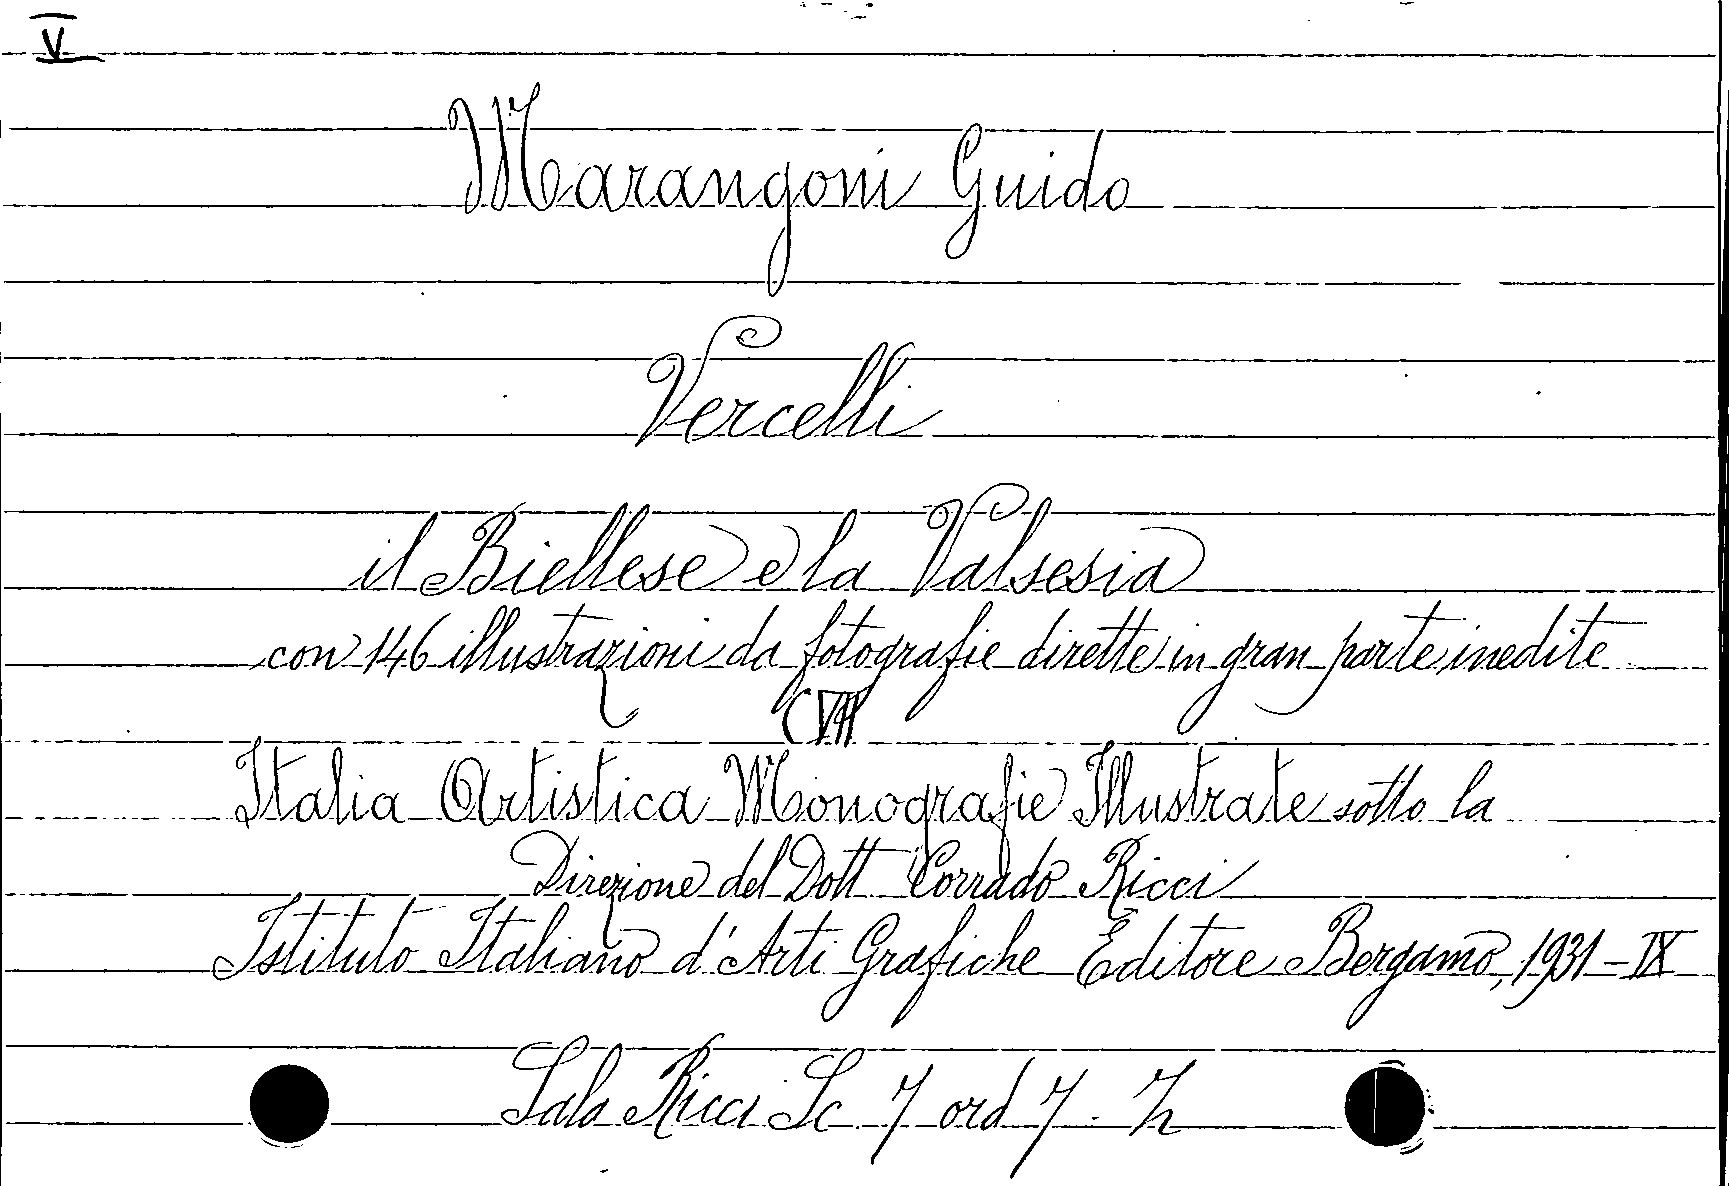 V
Marangoni Guido
Vercelli
il Biellese e la Valsesia
con 146 illustrazioni da fotografie dirette in gran parte inedite
CVII
Italia Artistica Monografie Illustrate sotto la
Direzione del Dott Corrado Ricci
Istituto Italiano d'Arti Grafiche Editore Bergamo, 1931-IX
Sala Ricci Sc 7 ord 7. h